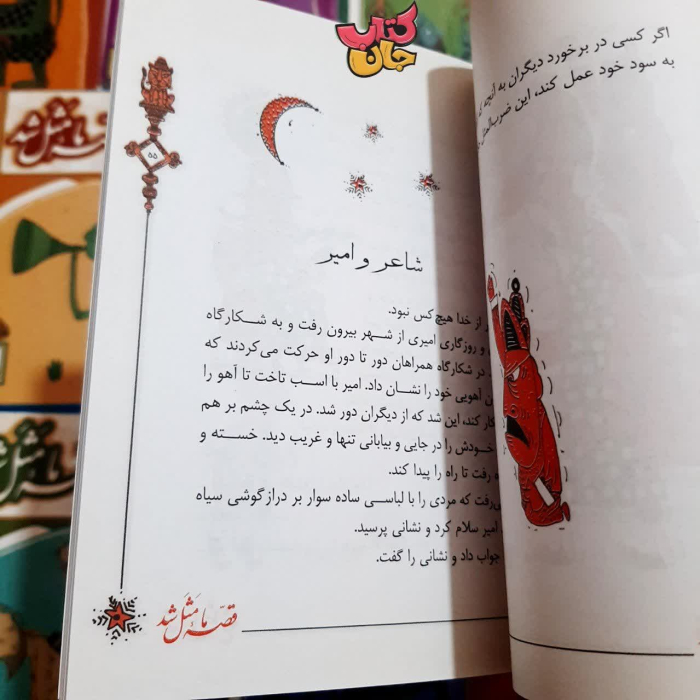 کتاب
جان
اگر کسی در برخورد دیگران به آنچه
به سود خود عمل کند، این ضرب‌المثل
۵۵
شاعر و امیر
از خدا هیچ کس نبود.
و روزگاری امیری از شهر بیرون رفت و به شکارگاه
در شکارگاه همراهان دور تا دور او حرکت می‌کردند که
آهویی خود را نشان داد. امیر با اسب تاخت تا آهو را
کند، این شد که از دیگران دور شد. در یک چشم بر هم
خودش را در جایی و بیابانی تنها و غریب دید. خسته و
رفت تا راه را پیدا کند.
رفت که مردی را با لباسی ساده سوار بر درازگوشی سیاه
امیر سلام کرد و نشانی پرسید.
جواب داد و نشانی را گفت.
قصّه ما مَثَل شد